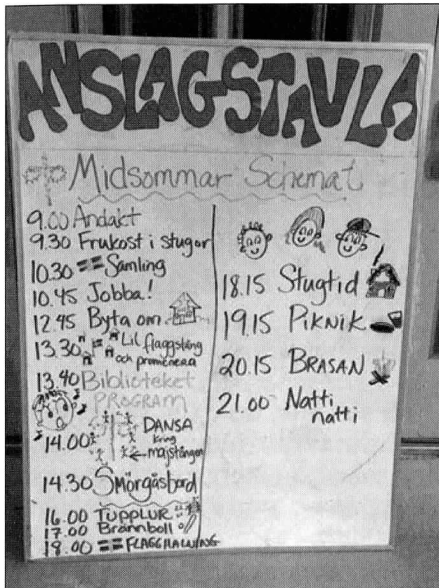 ANSLAGSTAVLA
Midsommar Schemat
9.00 Andakt
9.30 Frukost i stugor
10.30 Samling
10.45 Jobba!
12.45 Byta om
13.30 Lil flaggstång
och promenera
13.40 Biblioteket
PROGRAM
14.00 DANSA
kring
majstången
14.30 Smörgåsbord
16.00 TUPPLUR
17.00 Brännboll
18.00 FLAGGHALNING
18.15 Stugtid
19.15 PIKNIK
20.15 BRASAN
21.00 Natti
natti